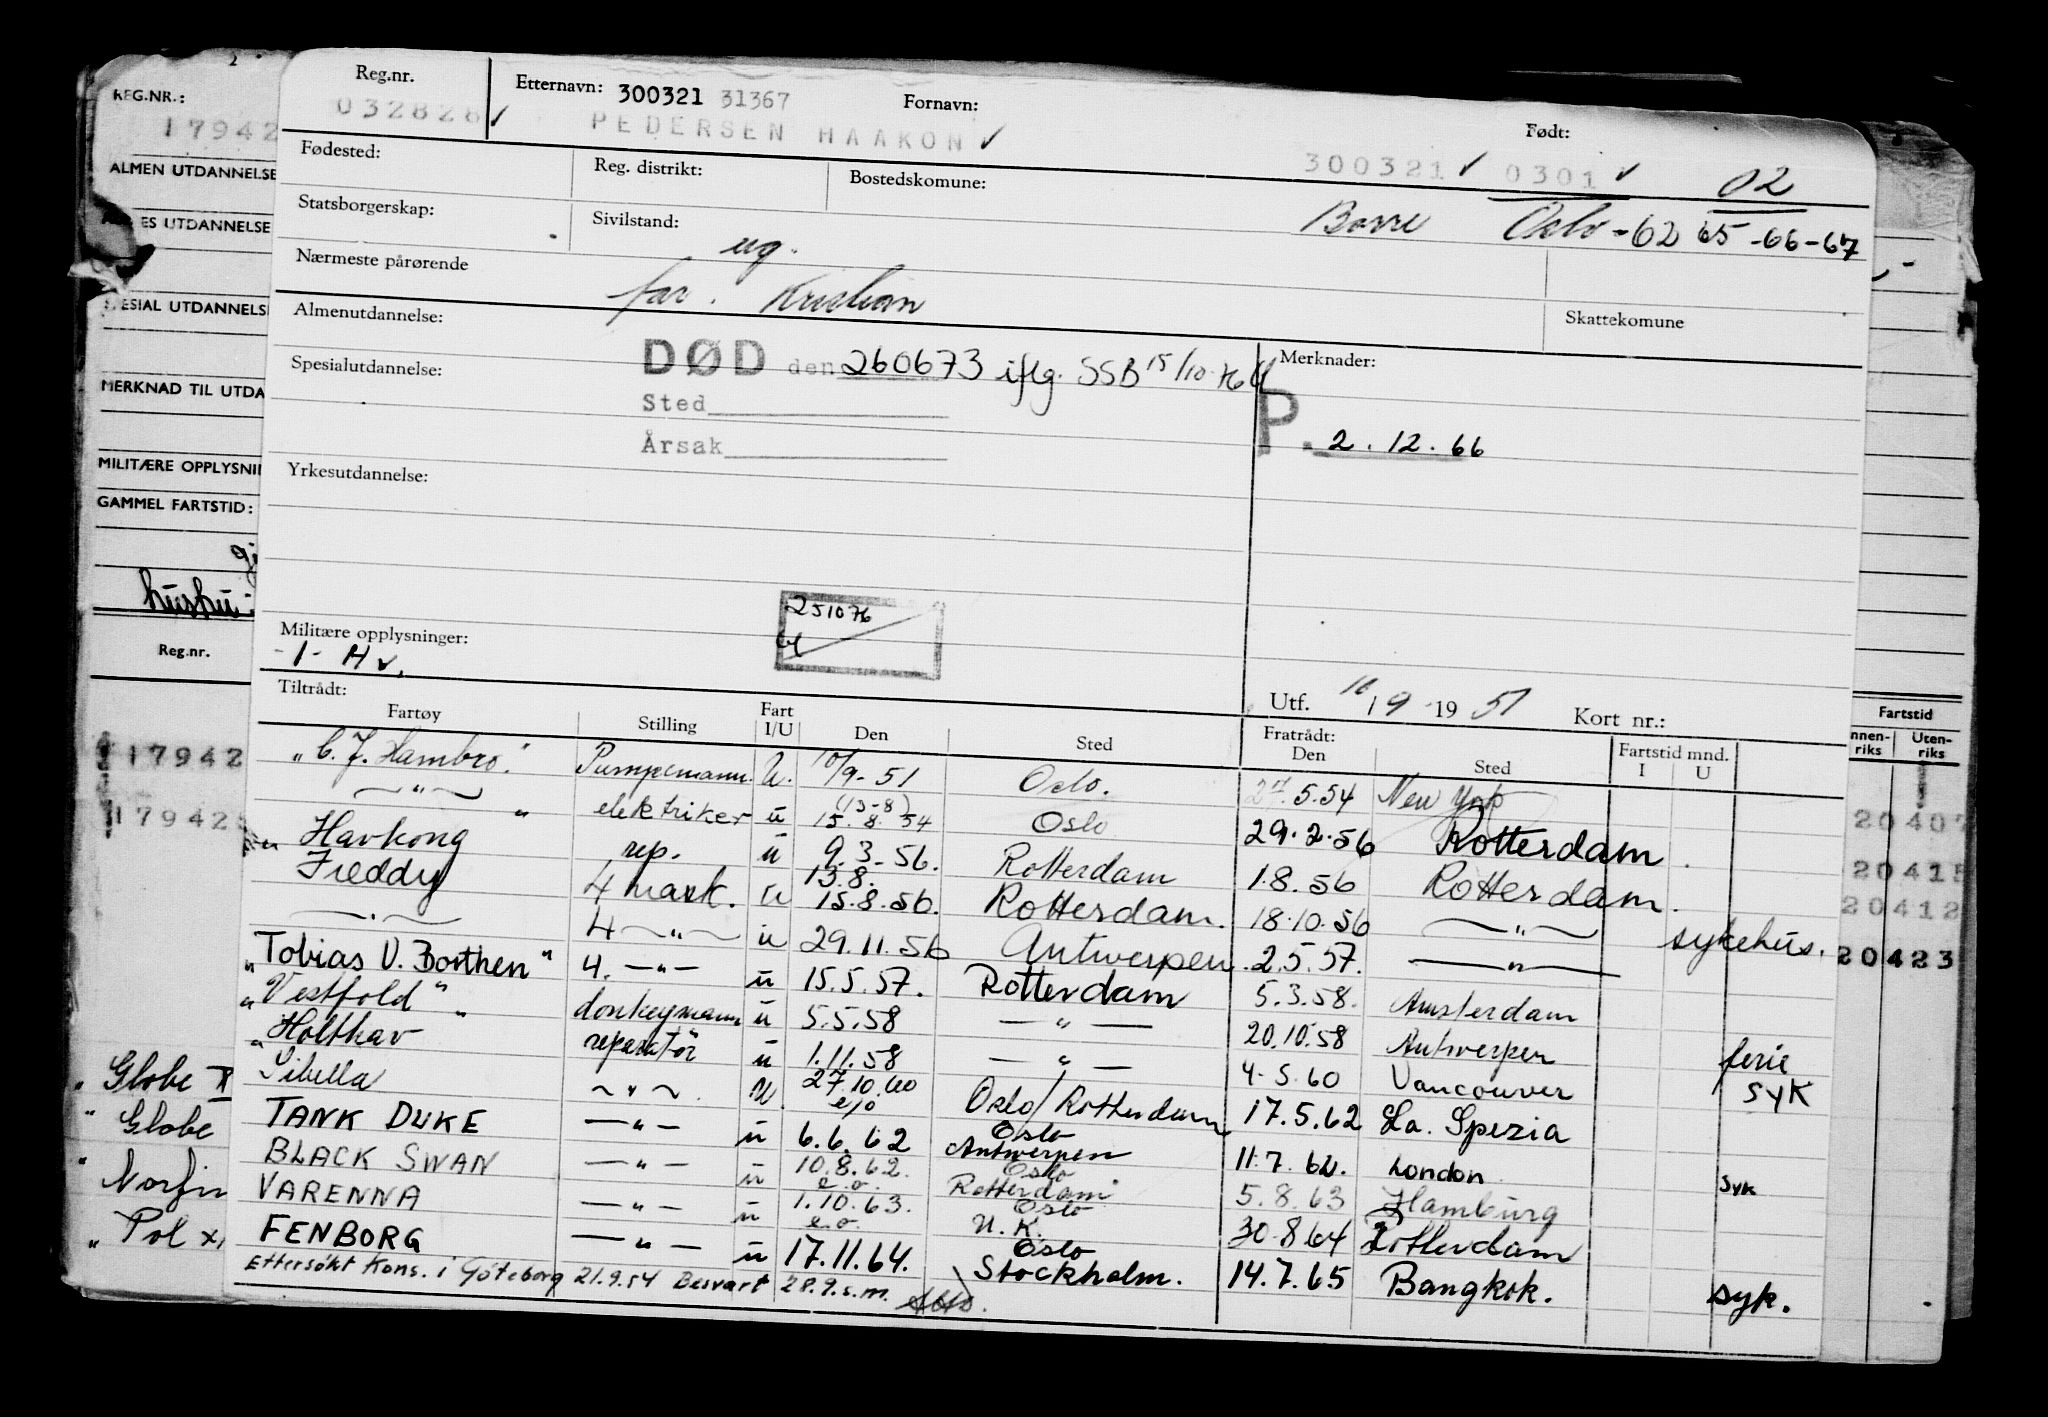 Reg.nr. Etternavn: 300321 31367 Fornavn: Født:
032828 ✓ PEDERSEN HAAKON ✓ 300321 ✓ 0301 ✓ 02
Fødested: Reg. distrikt: Bostedskomune:
Borre Oslo -62 65-66-67
Statsborgerskap: Sivilstand: ug.
Nærmeste pårørende far. Kristian
Skattekomune
Almenutdannelse:
DØD den 260673 iflg. SSB 15/10-76
Merknader:
Spesialutdannelse:
Sted
P. 2.12.66
Årsak
Yrkesutdannelse:
251076
Militære opplysninger:
-1- Hv.
Tiltrådt: Utf. 10/9-1951 Kort nr.:
Fartøy Stilling Fart I/U Den Sted Fratrådt: Den Sted Fartstid mnd. I U
"C. J. Hambro". Pumpemann. U. 10/9-51 Oslo. 27.5.54 New York
—"— elektriker u (13-8) 15.8.54 Oslo 29.2.56 Rotterdam.
"Havkong" rep. u 9.3.56. Rotterdam 1.8.56 Rotterdam.
Freddy 4 mask. u 13.8. 15.8.56. Rotterdam. 18.10.56 —"— sykehus.
—"— 4 —"— u 29.11.56 Antwerpen. 2.5.57. —"—
"Tobias U. Borthen" 4. —"— u 15.5.57. Rotterdam 5.3.58. Amsterdam
"Vestfold" donkeymann u 5.5.58 —"— 20.10.58 Antwerpen ferie
"Holthav" reparatör u 1.11.58 —"— 4.5.60 Vancouver syk
"Sibella —"— U. 27.10.60 e/o Oslo/Rotterdam 17.5.62 La. Spezia
TANK DUKE —"— u 6.6.62 Oslo Antwerpen 11.7.62. London syk
BLACK SWAN —"— u 10.8.62. e.o. Oslo Rotterdam 5.8.63 Hamburg
VARENNA —"— u 1.10.63. e.o. Oslo U.K. 30.8.64 Rotterdam
FENBORG —"— u 17.11.64. Oslo Stockholm. 14.7.65 Bangkok. syk.
Ettersøkt Kons. i Göteborg 21.9.54 Besvart 28.9.s.m.
REG.NR.:
17942
ALMEN UTDANNELSE
ES UTDANNELSE
ESIAL UTDANNELS
MERKNAD TIL UTDA
MILITÆRE OPPLYSNI
GAMMEL FARTSTID:
hushu
Reg.nr.
17942
17942
"Globe
"Globe
"Norfin
"Pol
Fartstid
nnen-riks Uten-riks
2040
2041
20412
20423